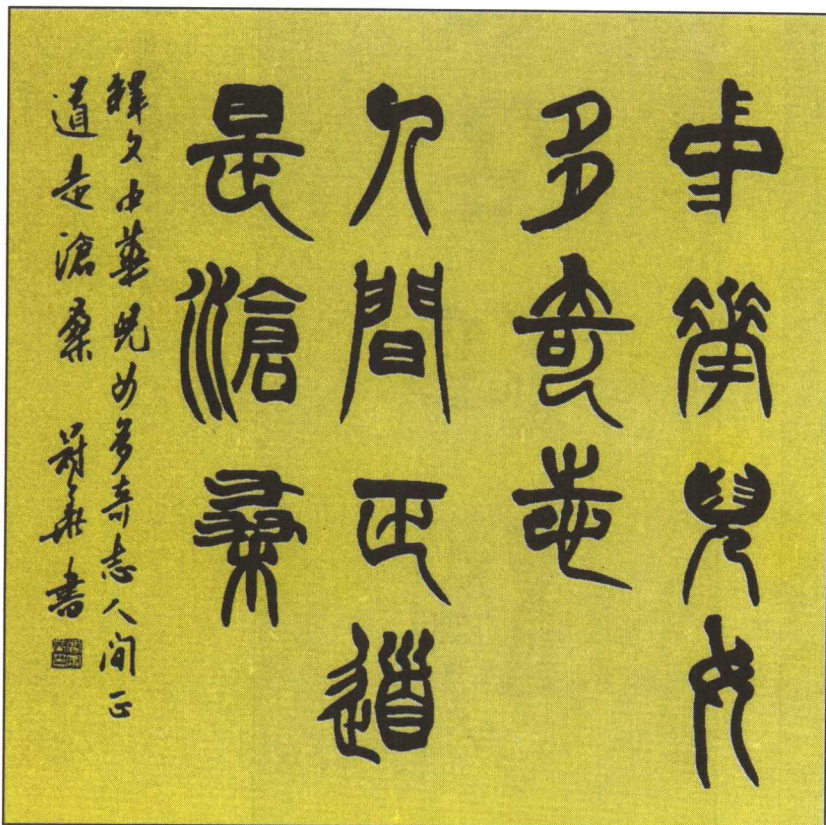 中華兒女
多奇志
人間正道
是滄桑
釋文中華兒女多奇志人间正
道是滄桑 華書